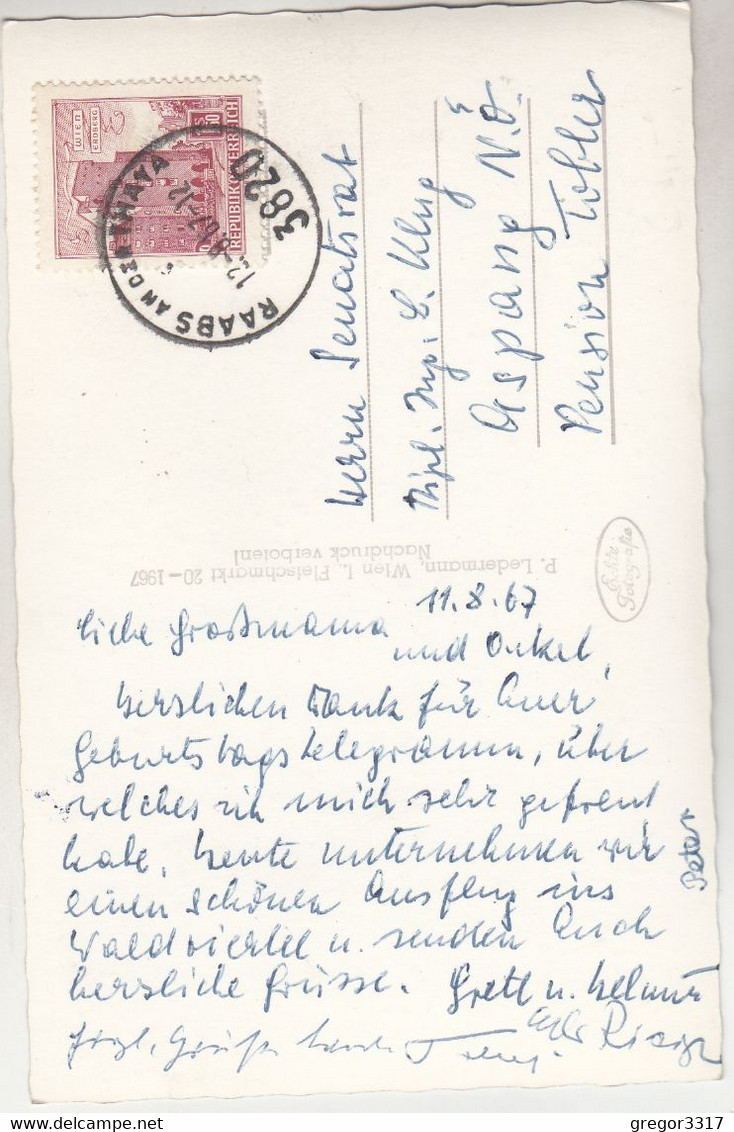 WIEN
ERDBERG
S 1.50
REPUBLIK ÖSTERREICH
RAABS AN DER THAYA
3820
12.-8.67-12
Herrn Senatsrat
Dipl. Ing. E. Klug
Aspang N.Ö.
Pension Tobler
P. Ledermann, Wien I., Fleischmarkt 20-1967
Nachdruck verboten!
Echte
Fotografie
11.8.67
Liebe Großmama
und Onkel,
Herzlichen Dank für Euer
Geburtstagstelegramm, über
welches ich mich sehr gefreut
habe. Heute unternehmen wir
einen schönen Ausflug ins
Waldviertel u. senden Euch
herzliche Grüsse. Gretl u. Helmut
Peter
gregor3317